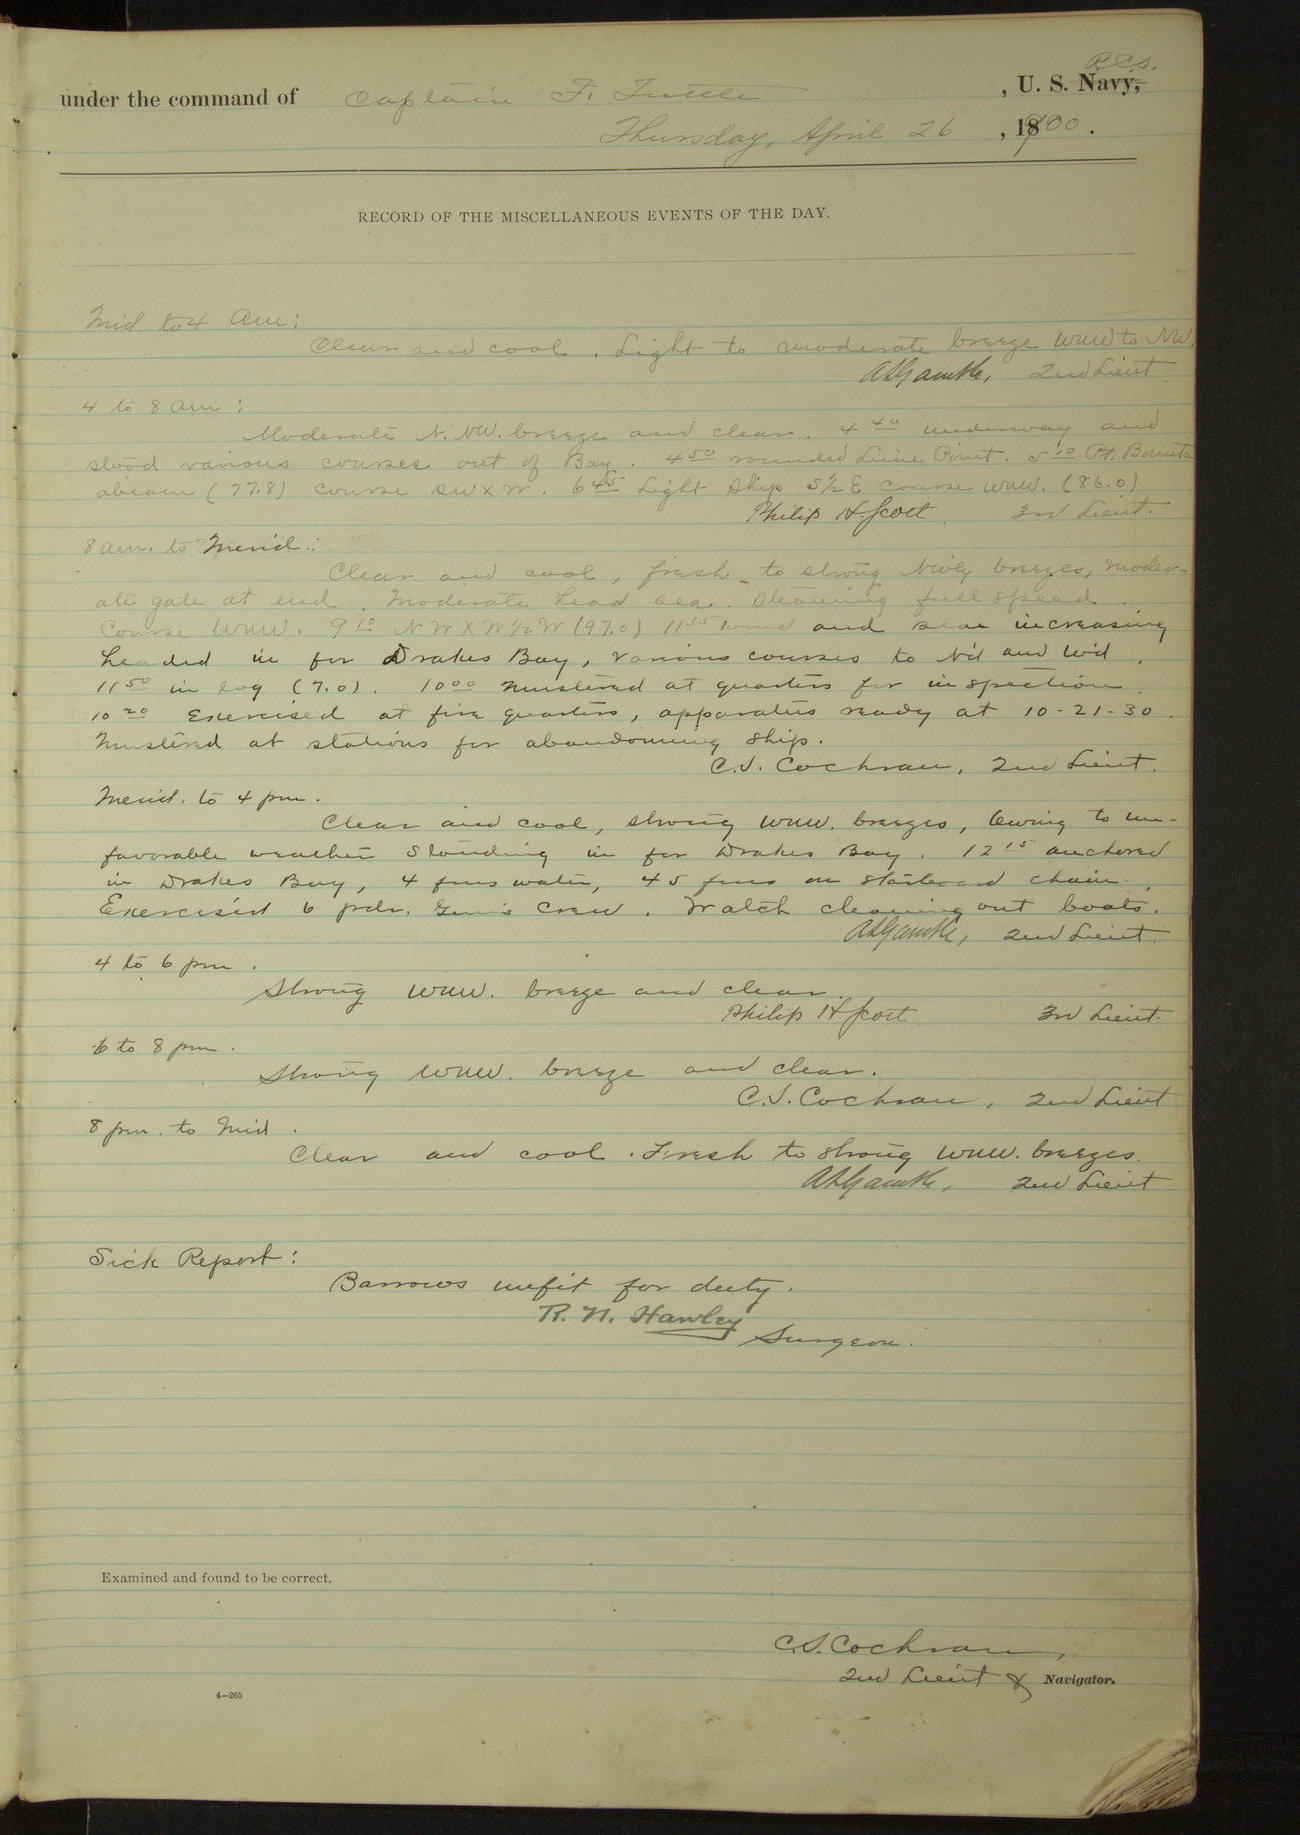 R.C.S.
under the command of Captain F. Tuttle , U. S. Navy,
Thursday, April 26 , 1900 .
RECORD OF THE MISCELLANEOUS EVENTS OF THE DAY.
Mid. to 4 am:
Clear and cool. Light to moderate breeze WNW to NW.
2nd Lieut
4 to 8 am:
Moderate N.NW. breeze and clear. 4 40 underway and
stood various courses out of Bay. 4 50 rounded Lime Point. 5 10 Pt. Bonita
abeam (77.8) course SWxW. 6 45 Light Ship S½E course WNW. (86.0)
Philip H. Scott 3rd Lieut.
8 am. to Merid.:
Clear and cool, fresh to strong NW'ly breezes, moder-
ate gale at end. Moderate head sea. Steaming full speed.
Course WNW. 9 10 NWxW½W (97.0) 11 35 wind and sea increasing
headed in for Drakes Bay, various courses to N'd and W'd.
11 50 in log (7.0). 10 00 Mustered at quarters for inspection.
10 20 Exercised at fire quarters, apparatus ready at 10-21-30.
Mustered at stations for abandoning ship.
C.S. Cochran, 2nd Lieut.
Merid. to 4 pm.
Clear and cool, strong WNW. breezes, Owing to un-
favorable weather standing in for Drakes Bay. 12 15 anchored
in Drakes Bay, 4 fms water, 45 fms on starboard chain.
Exercised 6 pdr. Gun's Crew. Watch cleaning out boats.
2nd Lieut.
4 to 6 pm.
Strong WNW. breeze and clear.
Philip H. Scott 3rd Lieut.
6 to 8 pm.
Strong WNW. breeze and clear.
C.S. Cochran, 2nd Lieut
8 pm. to Mid.
Clear and cool. Fresh to strong WNW. breezes.
2nd Lieut
Sick Report:
Barrows unfit for duty.
R. N. Hawley
Surgeon.
Examined and found to be correct.
C.S. Cochran,
2nd Lieut & Navigator.
4—265